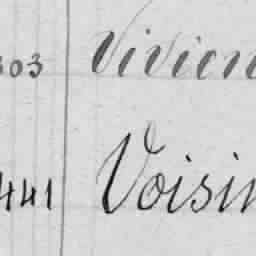 303 Vivien
441 Voisin